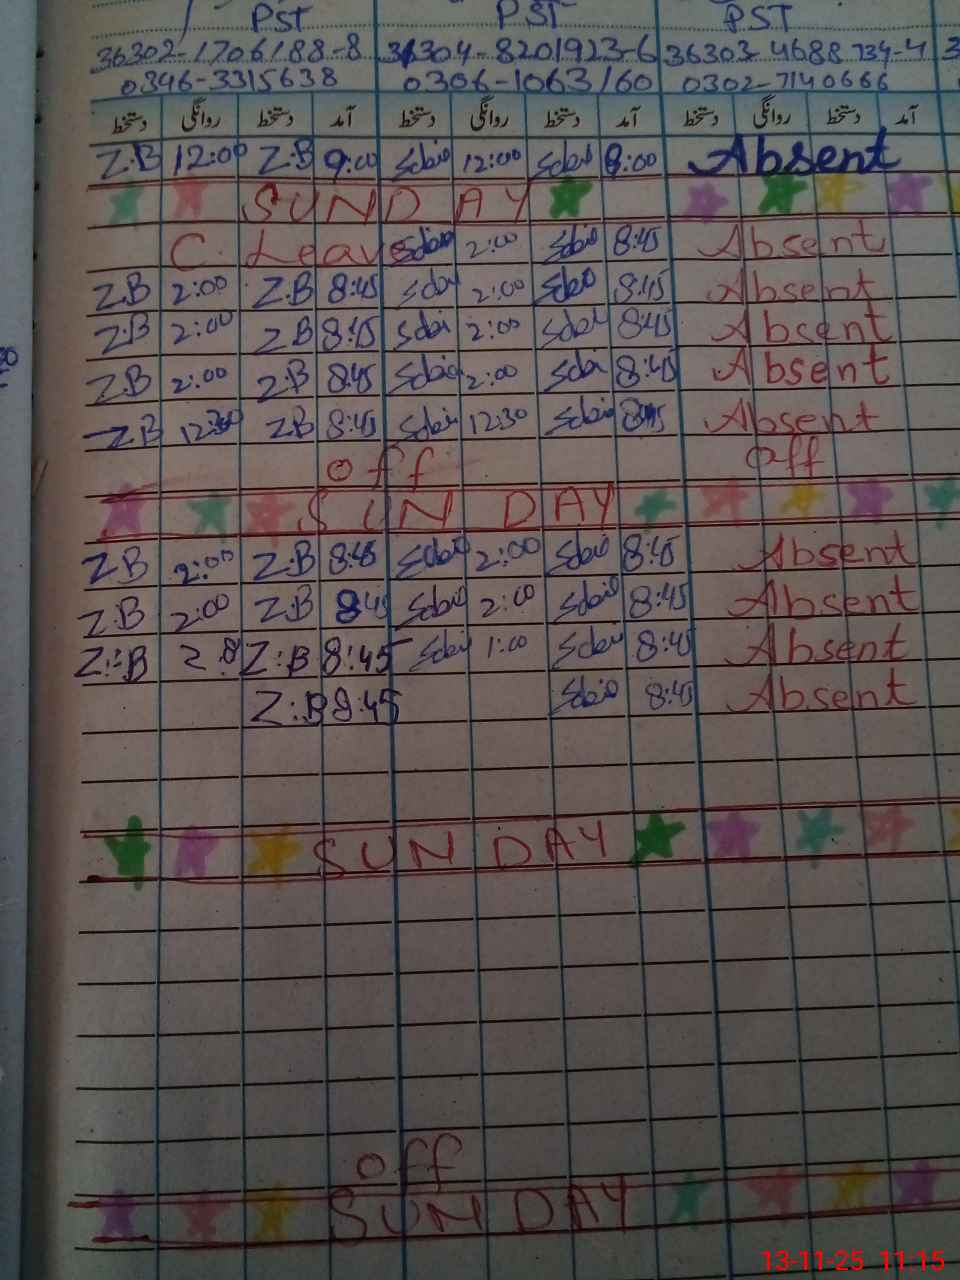 PST PST PST
36302-1706188-8 36304-8201923-6 36303-4688734-4
0346-3315638 0306-1063160 0302-7140666
دستخط روانگی دستخط آمد دستخط روانگی دستخط آمد دستخط روانگی دستخط آمد
Z.B 12:00 Z.B 9:00 12:00 8:00 Absent
SUNDAY
C. Leave 2:00 8:45 Absent
Z.B 2:00 Z.B 8:45 2:00 8:45 Absent
Z.B 2:00 Z.B 8:45 2:00 8:45 Absent
Z.B 2:00 Z.B 8:45 2:00 8:45 Absent
Z.B 12:30 Z.B 8:45 12:30 8:45 Absent
off off
SUNDAY
Z.B 2:00 Z.B 8:45 2:00 8:45 Absent
Z.B 2:00 Z.B 8:45 2:00 8:45 Absent
Z.B Z.B 8:45 1:00 8:45 Absent
Z.B 8:45 8:45 Absent
SUNDAY
off
SUNDAY
13-11-25 11:15